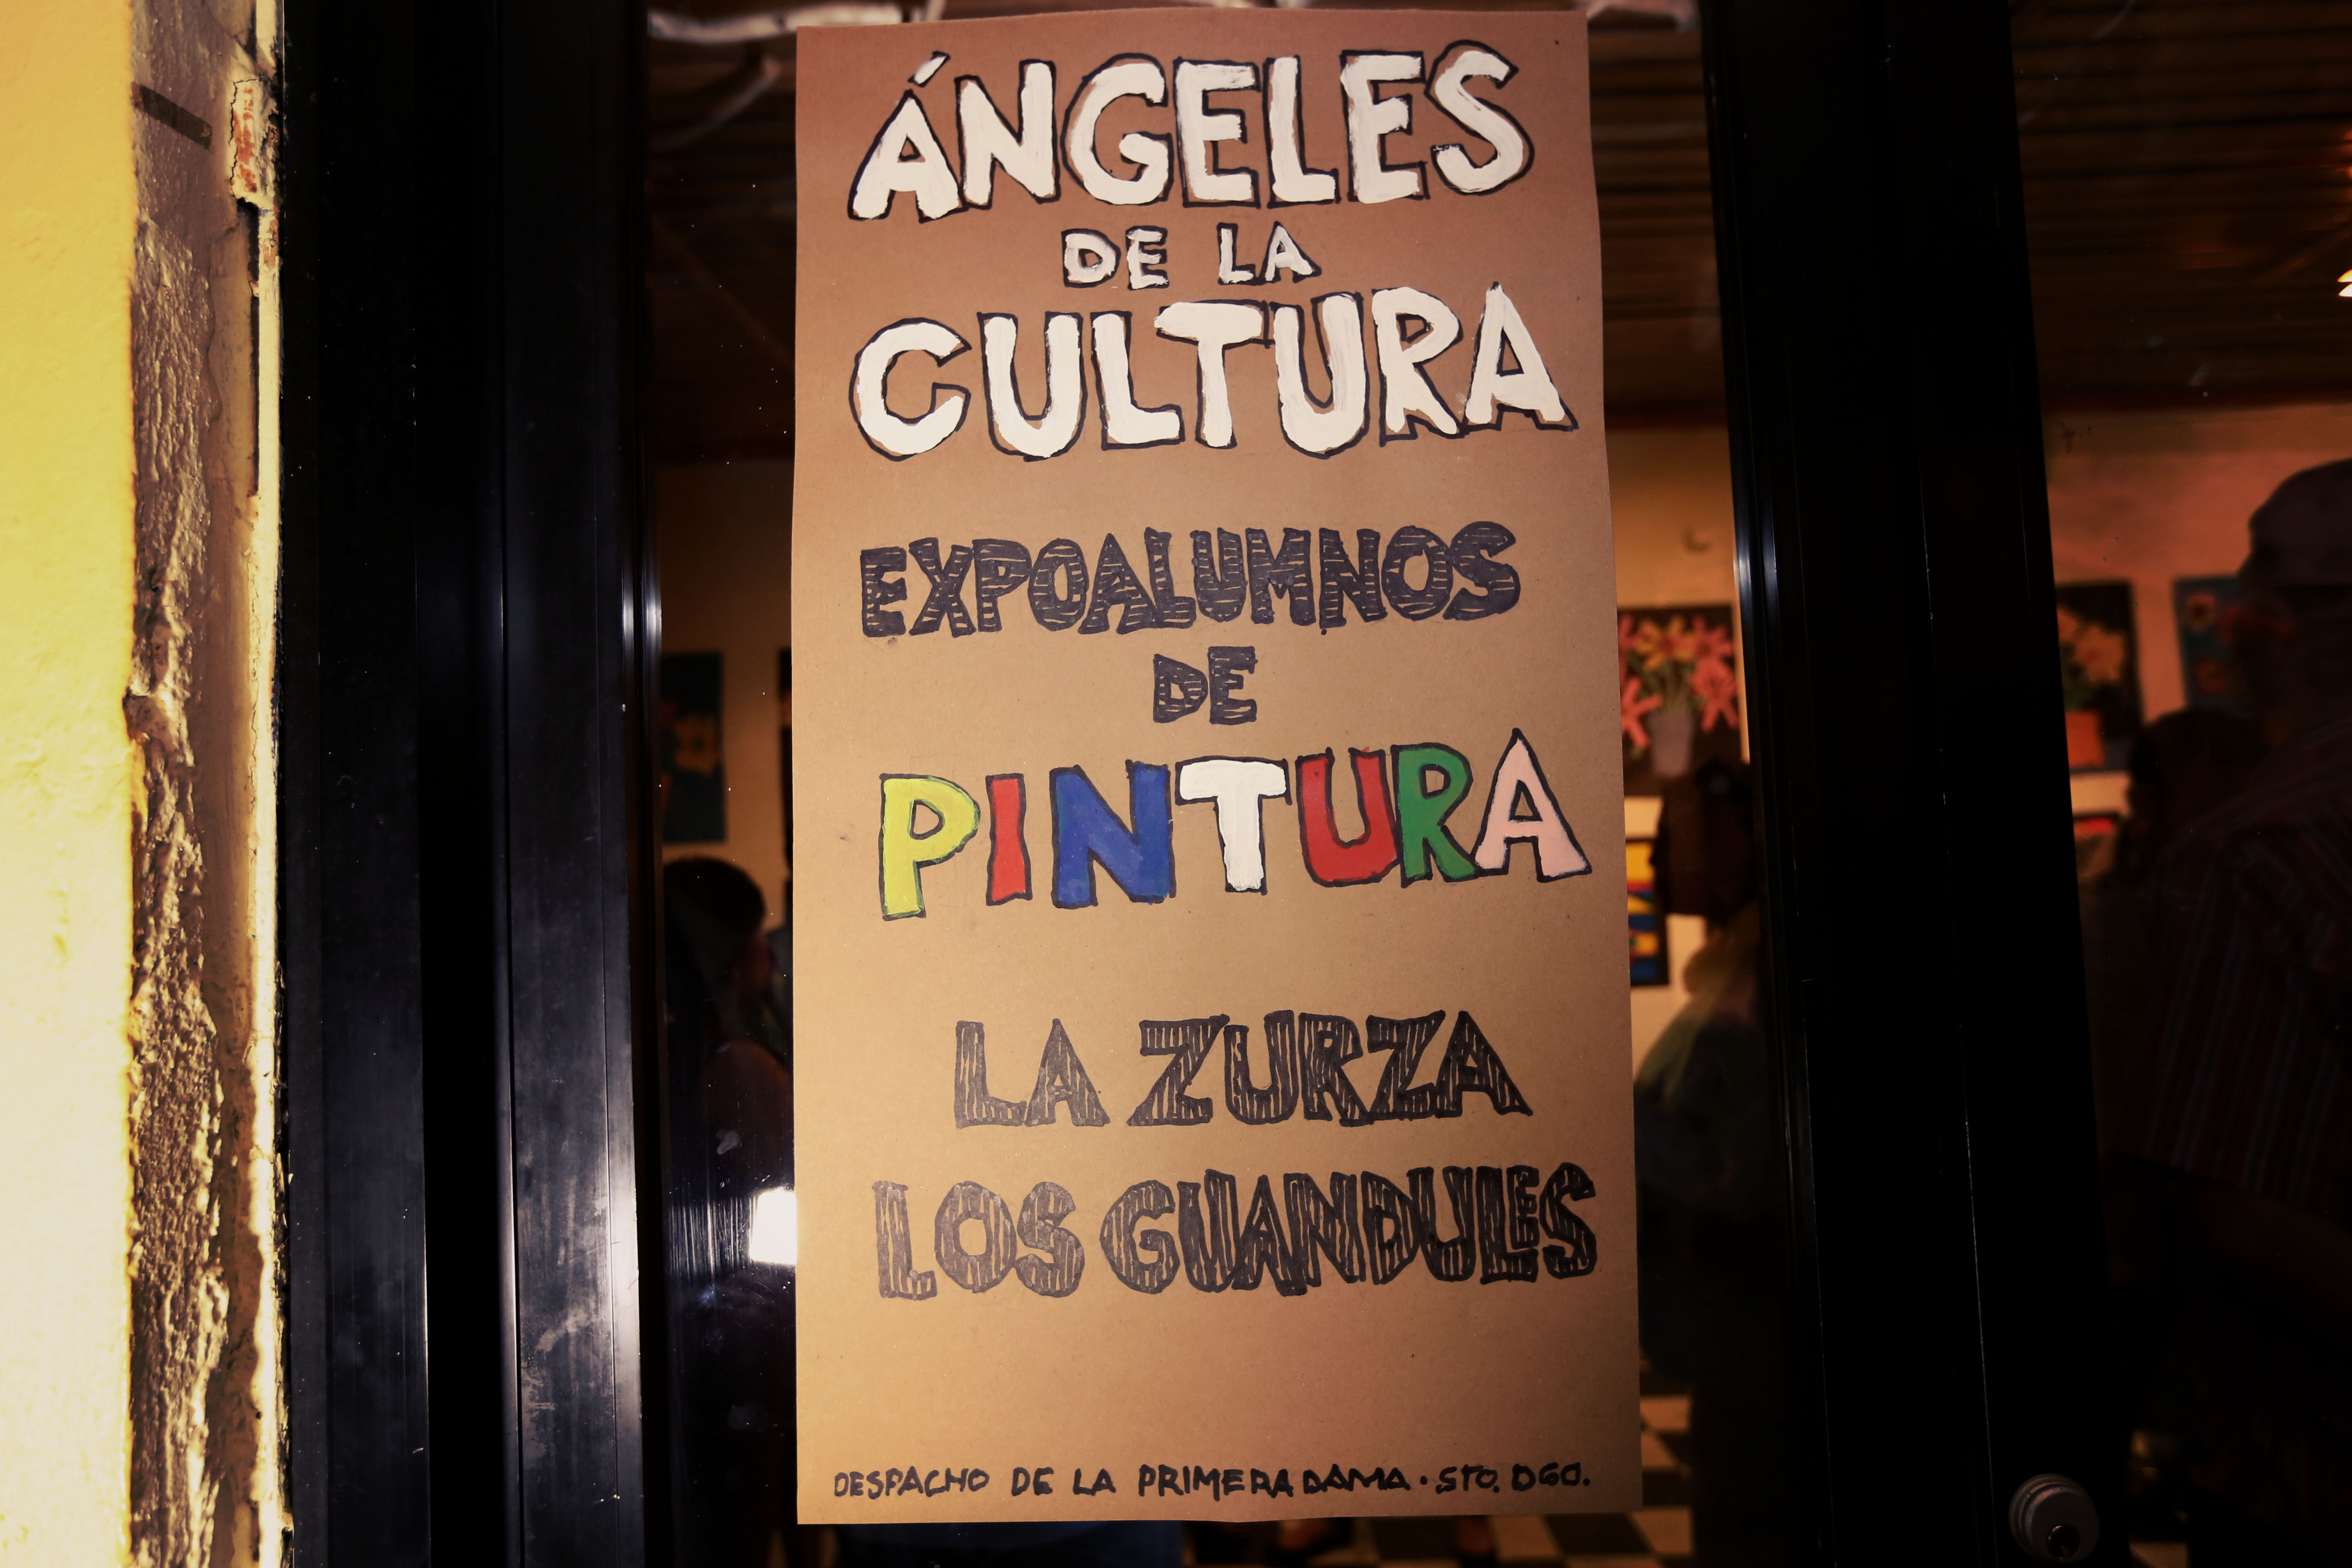 ÁNGELES
DE LA
CULTURA
EXPOALUMNOS
DE
PINTURA
LA ZURZA
LOS GUANDULES
DESPACHO DE LA PRIMERA DAMA · STO. DGO.